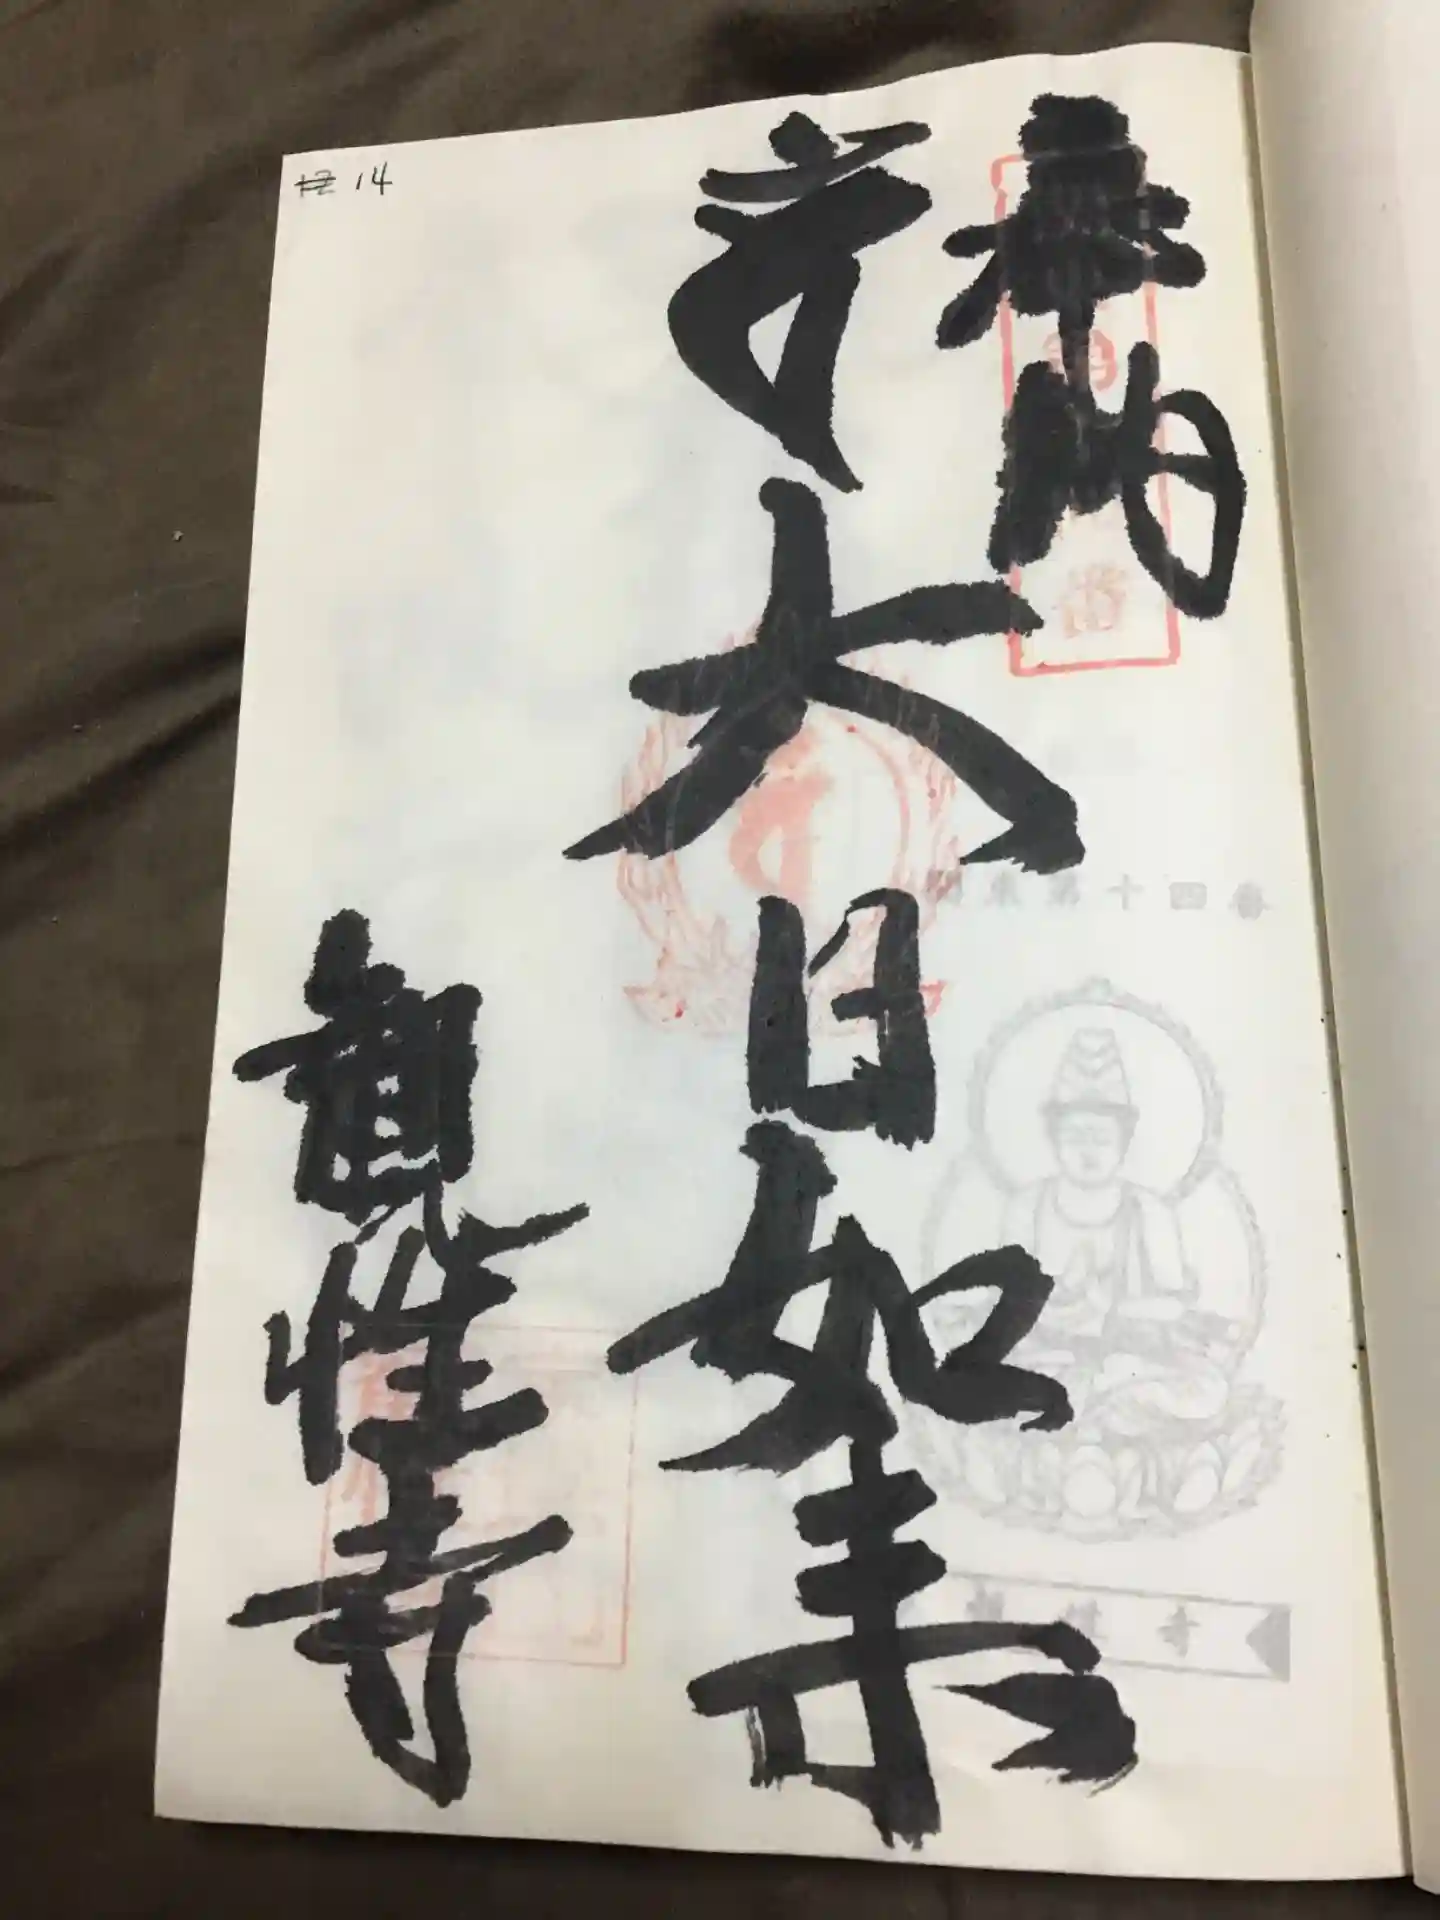 14
奉納
大日如来
観性寺
関東第十四番
観性寺